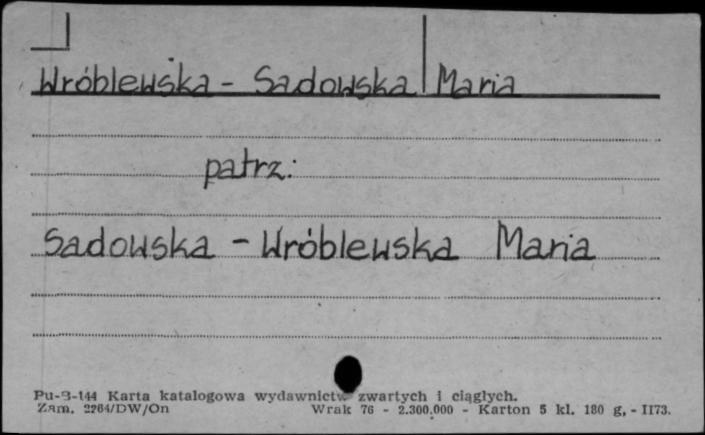 Wróblewska - Sadowska Maria
patrz:
Sadowska - Wróblewska Maria
Pu-B-144 Karta katalogowa wydawnictw zwartych i ciągłych.
Zam. 2264/DW/On Wrak 76 - 2.300.000 - Karton 5 kl. 180 g. - II73.